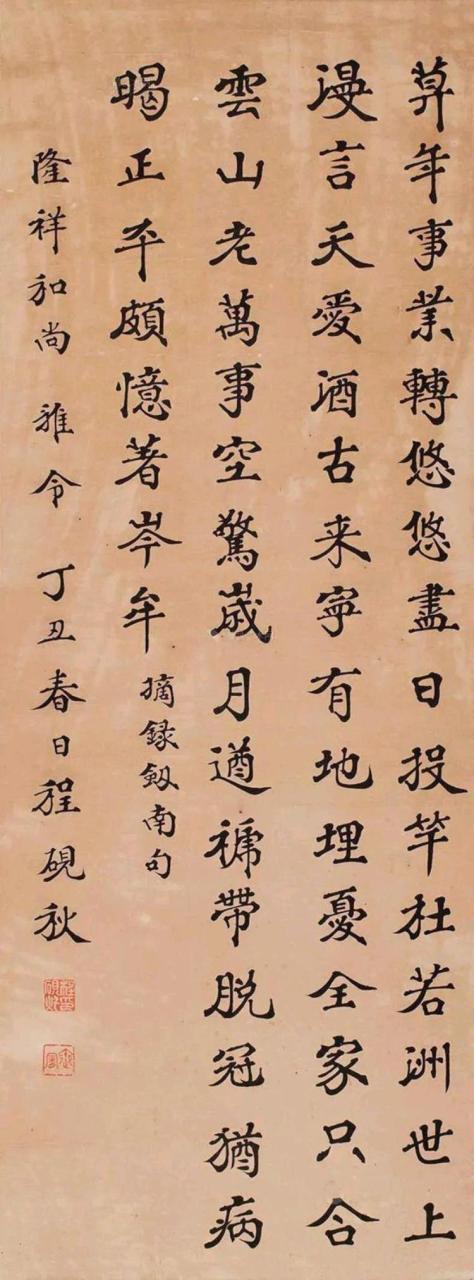 莫年事業轉悠悠盡日投竿杜若洲世上
漫言天愛酒古来寧有地埋憂全家只合
雲山老萬事空驚嵗月遒褫帶脱冠猶病
暍正平頗憶著岑牟
摘録釼南句
隆祥和尚 雅令 丁丑春日程硯秋